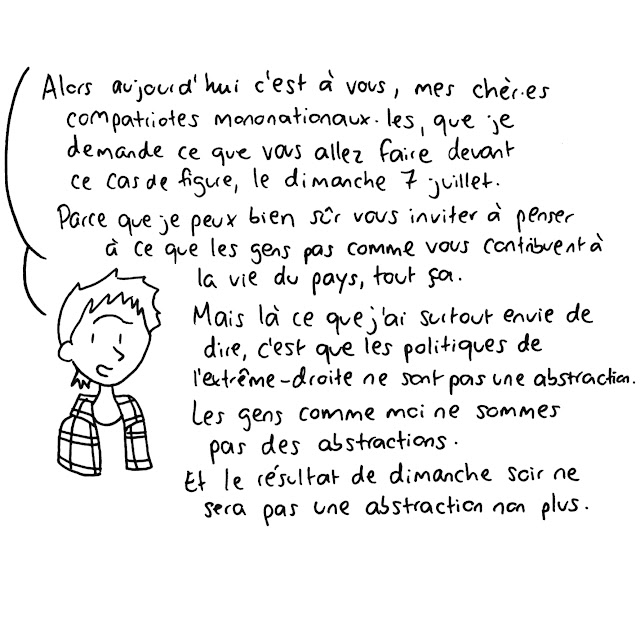 Alors aujourd'hui c'est à vous, mes chèr·es
compatriotes mononationaux·les, que je
demande ce que vous allez faire devant
ce cas de figure, le dimanche 7 juillet.
Parce que je peux bien sûr vous inviter à penser
à ce que les gens pas comme vous contribuent à
la vie du pays, tout ça.
Mais là ce que j'ai surtout envie de
dire, c'est que les politiques de
l'extrême-droite ne sont pas une abstraction.
Les gens comme moi ne sommes
pas des abstractions.
Et le résultat de dimanche soir ne
sera pas une abstraction non plus.